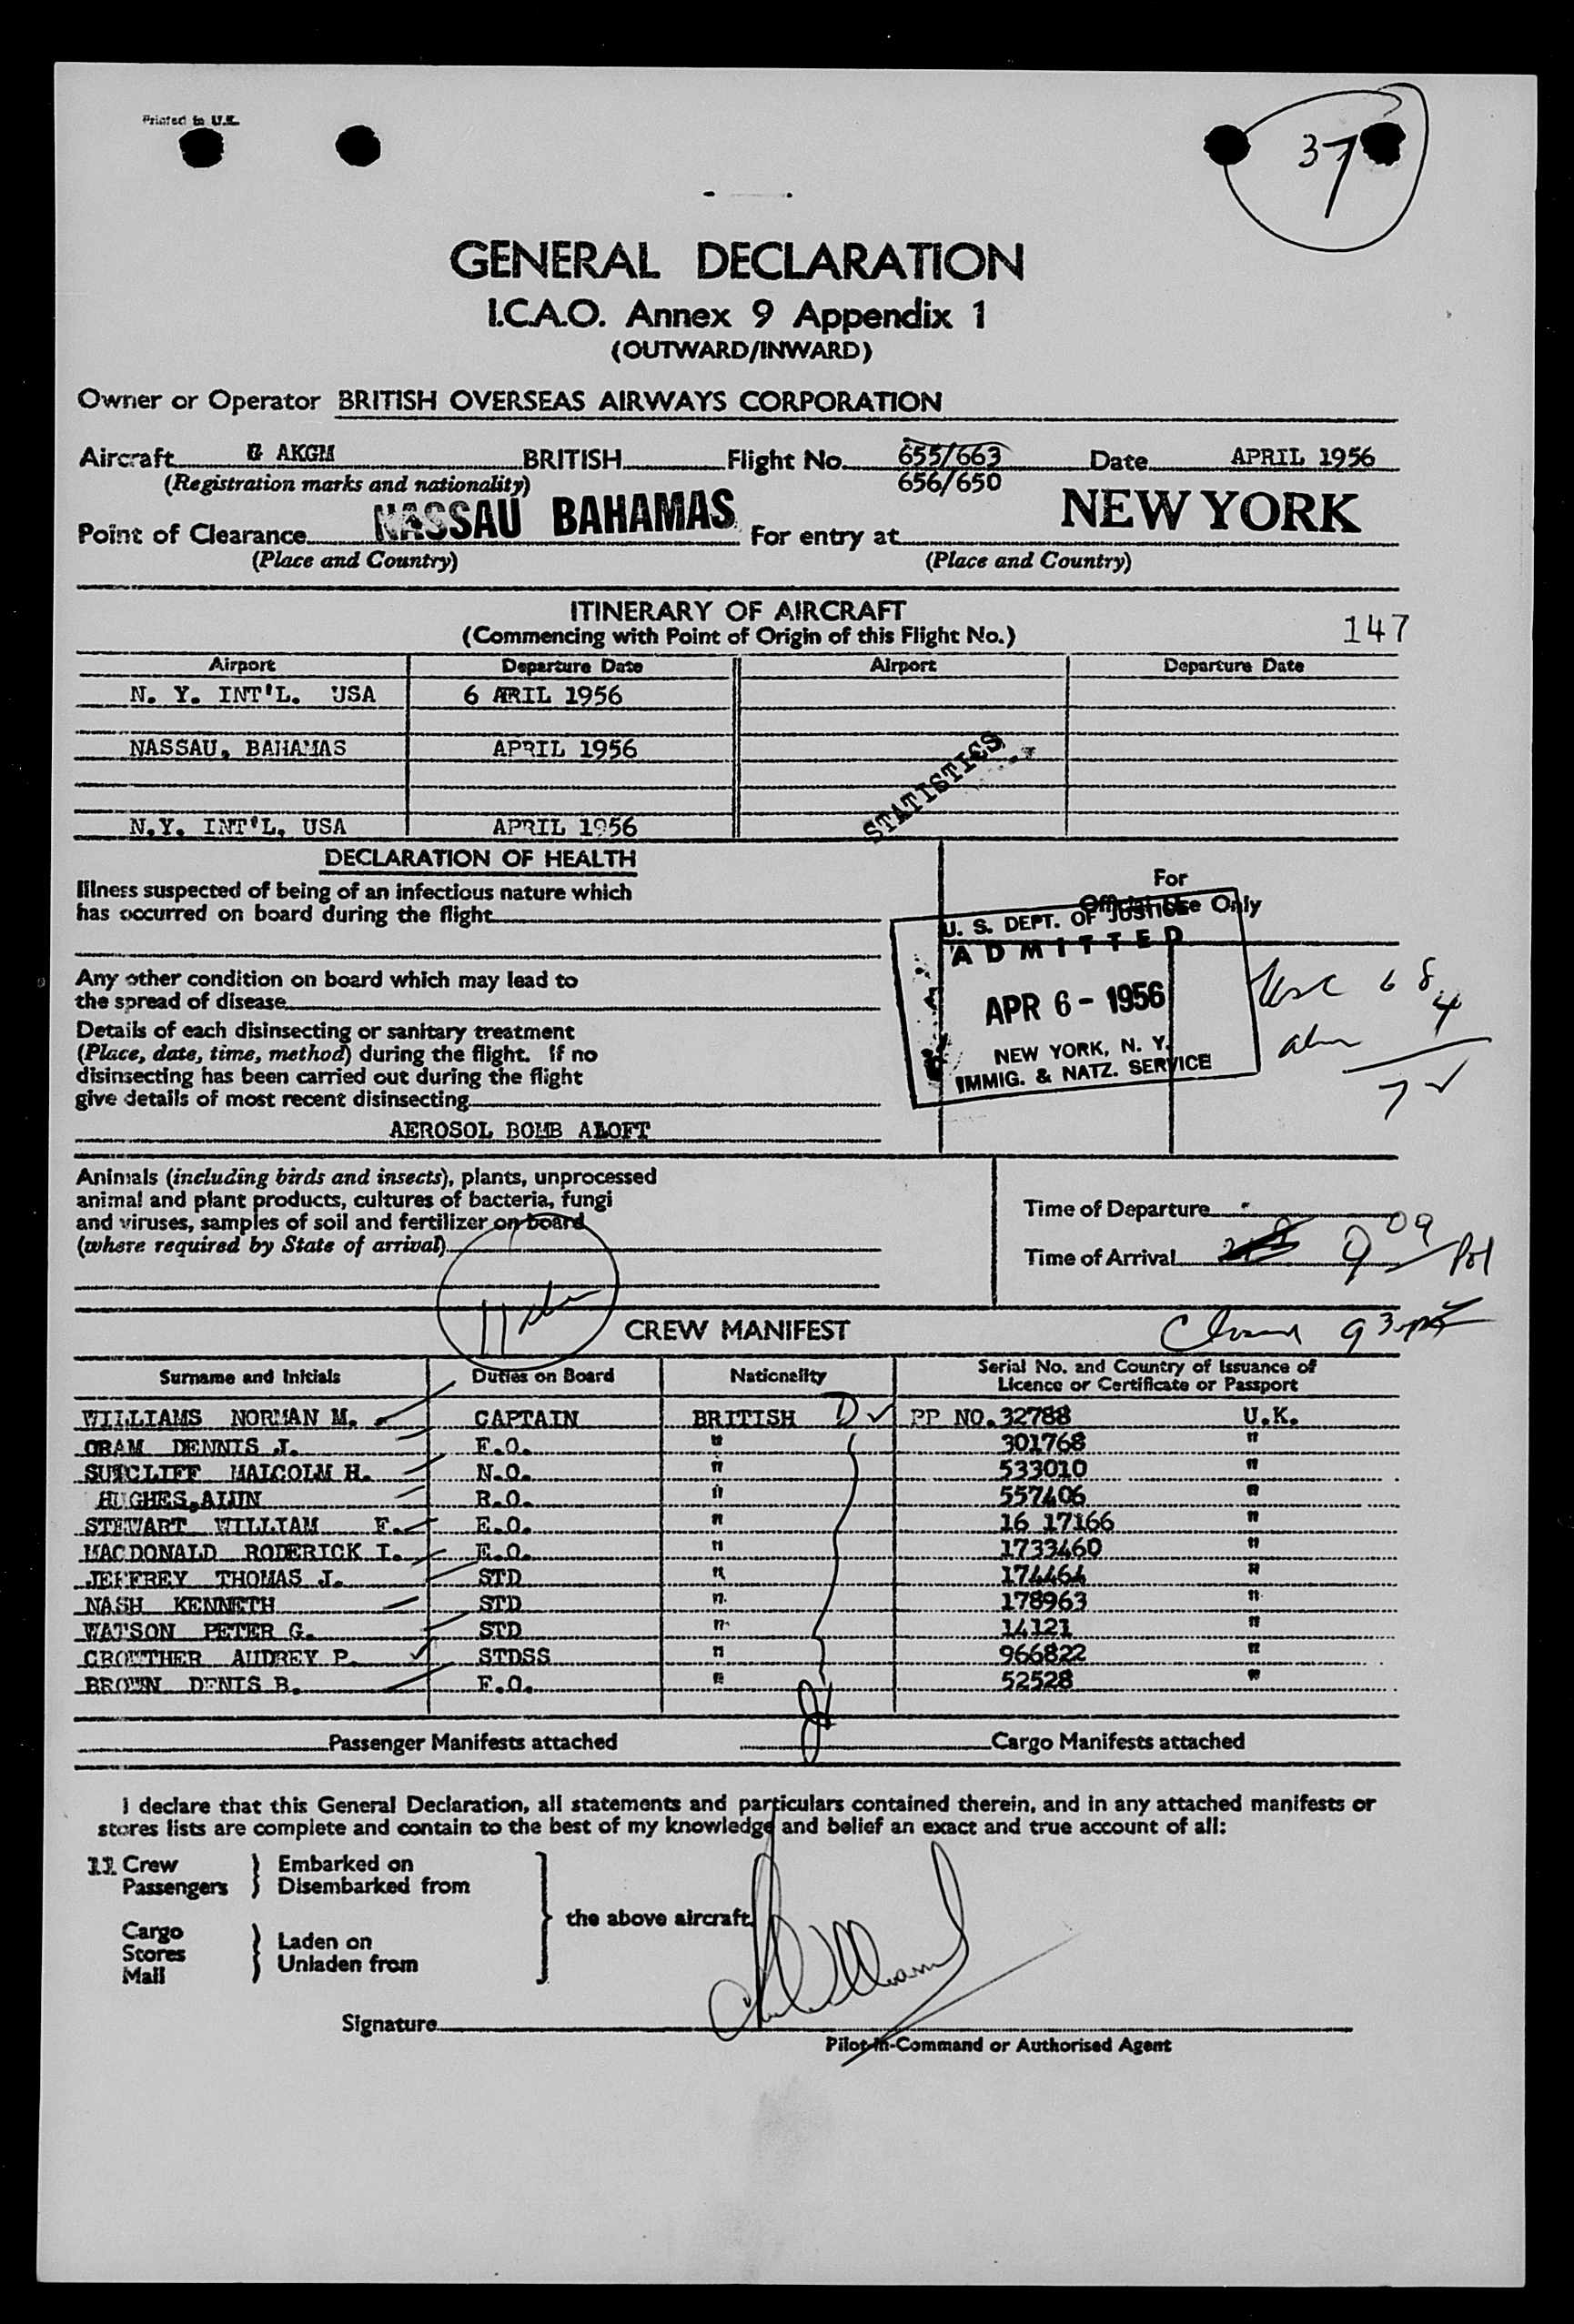 Printed in U.K.
37
GENERAL DECLARATION
I.C.A.O. Annex 9 Appendix 1
(OUTWARD/INWARD)
Owner or Operator BRITISH OVERSEAS AIRWAYS CORPORATION
Aircraft G AKGM BRITISH Flight No. 655/663 Date APRIL 1956
(Registration marks and nationality) 656/650
Point of Clearance NASSAU BAHAMAS For entry at NEW YORK
(Place and Country) (Place and Country)
ITINERARY OF AIRCRAFT
(Commencing with Point of Origin of this Flight No.) 147
Airport Departure Date Airport Departure Date
N. Y. INT'L. USA 6 ARIL 1956
NASSAU, BAHAMAS APRIL 1956
STATISTICS
N.Y. INT'L, USA APRIL 1956
DECLARATION OF HEALTH
Illness suspected of being of an infectious nature which
has occurred on board during the flight
For
Official Use Only
U. S. DEPT. OF JUSTICE
ADMITTED
APR 6 - 1956
NEW YORK, N. Y.
IMMIG. & NATZ. SERVICE
68
4
7
Any other condition on board which may lead to
the spread of disease
Details of each disinsecting or sanitary treatment
(Place, date, time, method) during the flight. If no
disinsecting has been carried out during the flight
give details of most recent disinsecting
AEROSOL BOMB ALOFT
Animals (including birds and insects), plants, unprocessed
animal and plant products, cultures of bacteria, fungi
and viruses, samples of soil and fertilizer on board
(where required by State of arrival)
Time of Departure
Time of Arrival 9 09
CREW MANIFEST
Surname and Initials Duties on Board Nationality Serial No. and Country of Issuance of
Licence or Certificate or Passport
WILLIAMS NORMAN M. CAPTAIN BRITISH D PP NO. 32788 U.K.
ORAM DENNIS J. F.O. " 301768 "
SUTCLIFF MALCOLM H. N.O. " 533010 "
HUGHES, ALUN R.O. " 557406 "
STEWART WILLIAM F. E.O. " 16 17166 "
MACDONALD RODERICK I. E.O. " 1733460 "
JEFFREY THOMAS J. STD " 174464 "
NASH KENNETH STD " 178963 "
WATSON PETER G. STD " 14121 "
CROWTHER AUDREY P. STDSS " 966822 "
BROWN DENIS B. F.O. " 52528 "
Passenger Manifests attached Cargo Manifests attached
I declare that this General Declaration, all statements and particulars contained therein, and in any attached manifests or
stores lists are complete and contain to the best of my knowledge and belief an exact and true account of all:
11 Crew Embarked on
Passengers Disembarked from
the above aircraft.
Cargo
Stores Laden on
Mail Unladen from
Signature
Pilot-in-Command or Authorised Agent